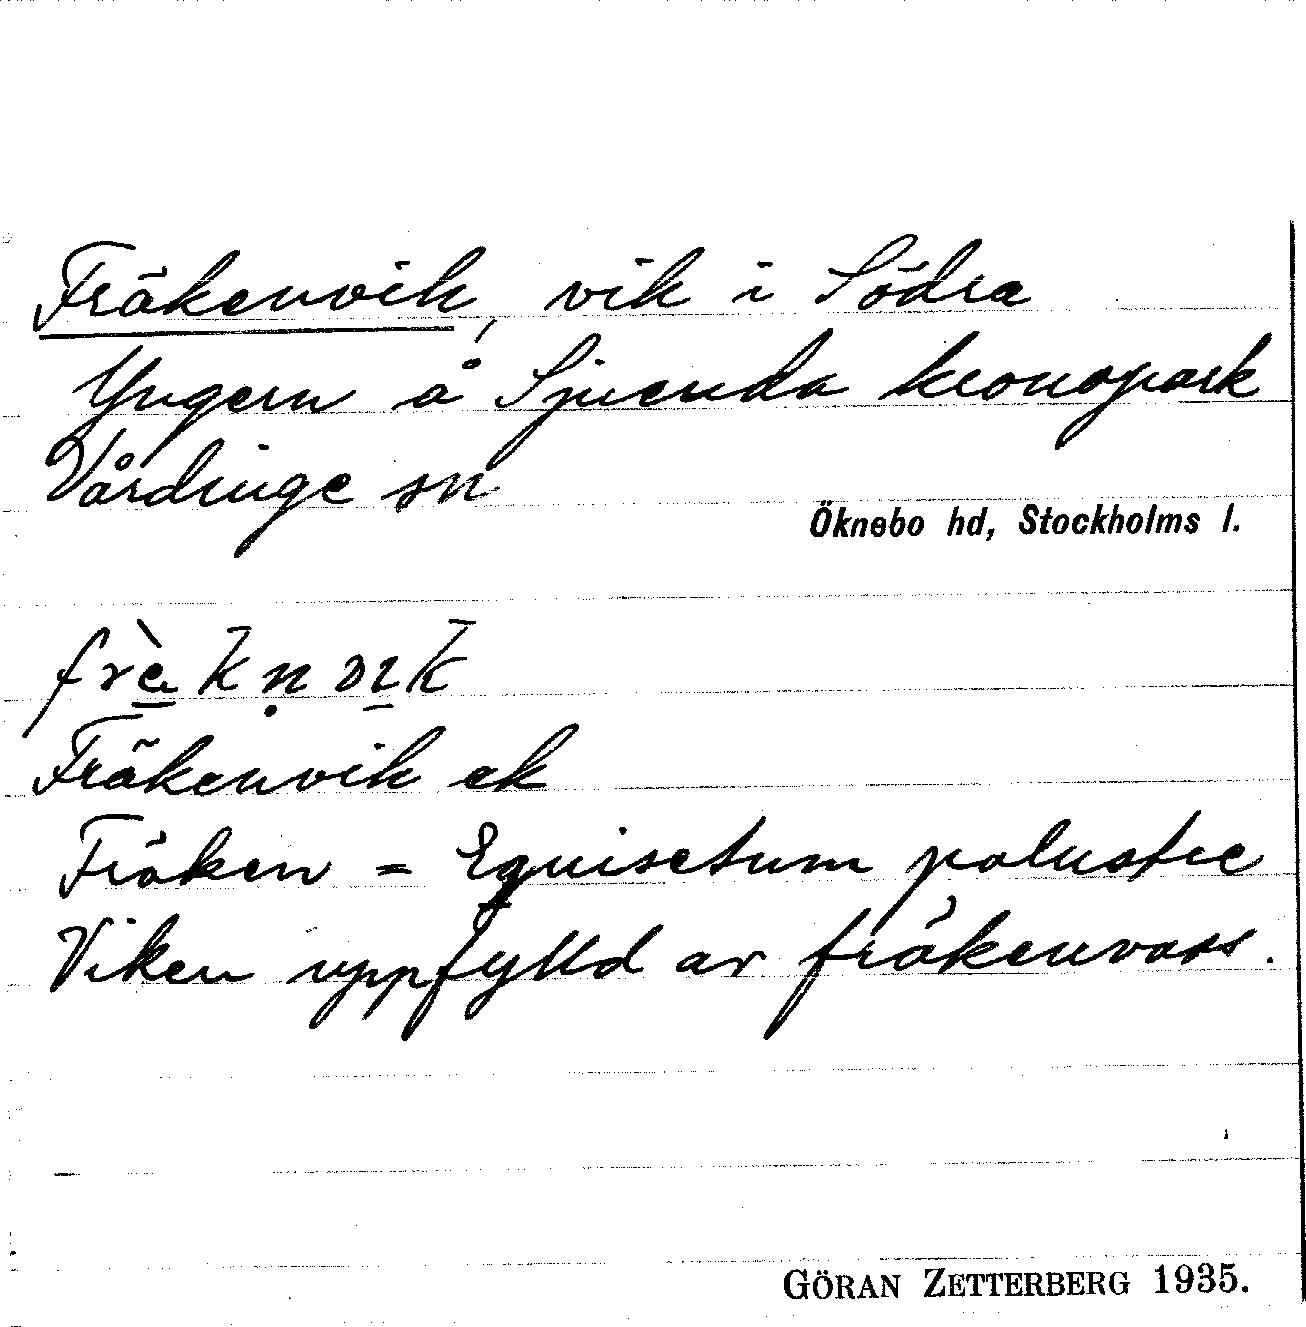 Fräkenvik, vik i Södra
Yngern å Sjuenda kronopark
Vårdinge sn
Öknebo hd, Stockholms l.
Fräkenvik ek
Fräken = Equisetum palustre
Viken uppfylld av fräkenvass.
GÖRAN ZETTERBERG 1935.